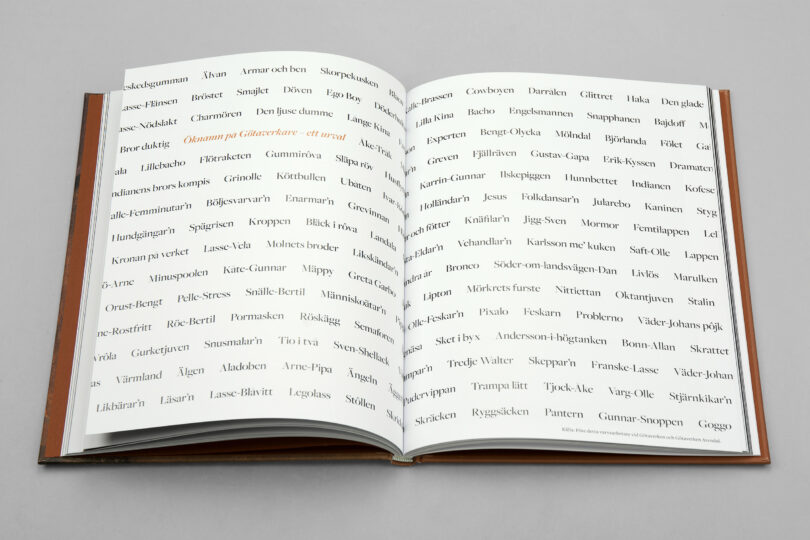 eskedsgumman Älvan Armar och ben Skorpekusken
asse-Flänsen Bröstet Smajlet Döven Ego Boy
asse-Nödslakt Charmören Den ljuse dumme Lange Kina
Bror duktig Öknamn på Götaverkare – ett urval Åke-Träk
ala Lillebacho Flötraketen Gummiröva Släpa röv
ndianens brors kompis Grinolle Köttbullen Ubåten
alle-Femminutar'n Böljesvarvar'n Enarmar'n Grevinnan
Hundgängar'n Spågrisen Kroppen Bläck i röva Landala
Kronan på verket Lasse-Vela Molnets broder Likskändar'n
ö-Arne Minuspoolen Kate-Gunnar Mäppy Greta Garbo
Orust-Bengt Pelle-Stress Snälle-Bertil Människoätar'n
ne-Rostfritt Röe-Bertil Pormasken Röskägg Semaforen
Vröla Gurketjuven Snusmalar'n Tio i två Sven-Shellack
as Värmland Älgen Aladoben Arne-Pipa Ängeln
Likbärar'n Läsar'n Lasse-Blåvitt Legolass Stöllen
alle-Brassen Cowboyen Darralen Glittret Haka Den glade
Lilla Kina Bacho Engelsmannen Snapphanen Bajdoff M
Experten Bengt-Olycka Mölndal Björlanda Fölet Gal
Greven Fjällräven Gustav-Gapa Erik-Kyssen Dramaten
Karrin-Gunnar Ilskepiggen Hunnbettet Indianen Kofese
Holländar'n Jesus Folkdansar'n Jularebo Kaninen Styg
r och fötter Knäfilar'n Jigg-Sven Mormor Femtilappen Lel
ta-Eldar'n Vehandlar'n Karlsson me' kuken Saft-Olle Lappen
ndra år Bronco Söder-om-landsvägen-Dan Livlös Marulken
Lipton Mörkrets furste Nittiettan Oktantjuven Stalin
Olle-Feskar'n Pixalo Feskarn Problerno Väder-Johans pöjk
Sket i byx Andersson-i-högtanken Bonn-Allan Skrattet
Tredje Walter Skeppar'n Franske-Lasse Väder-Johan
Pudervippan Trampa lätt Tjock-Åke Varg-Olle Stjärnkikar'n
Skräcken Ryggsäcken Pantern Gunnar-Snoppen Goggo